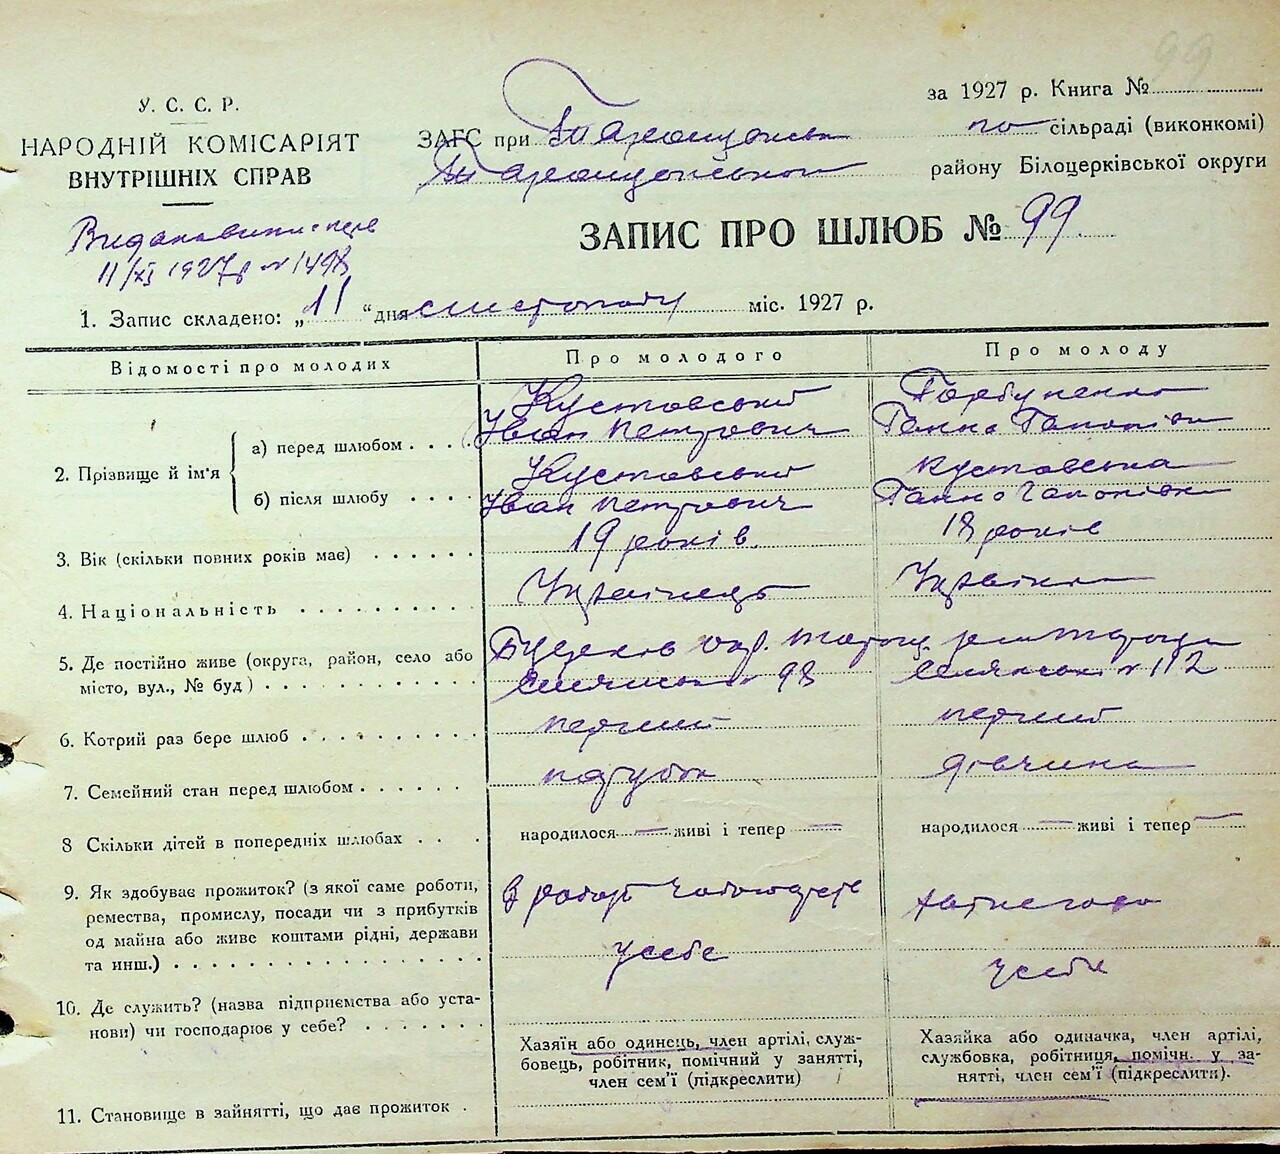 99
У. С. С. Р.
НАРОДНІЙ КОМІСАРІЯТ
ВНУТРІШНІХ СПРАВ
за 1927 р. Книга №
ЗАГС при по сільраді (виконкомі)
району Білоцерківської округи
11/XI 1927 р № 1498
ЗАПИС ПРО ШЛЮБ № 99
1. Запис складено: „11“ дня листопаду міс. 1927 р.
Відомості про молодих
Про молодого
Про молоду
2. Прізвище й ім'я
а) перед шлюбом
Кустовський
Іван Петрович
Ганна
б) після шлюбу
Кустовський
Іван Петрович
Кустовська
Ганна
3. Вік (скільки повних років має)
19 років
18 років
4. Національність
Українець
Українка
5. Де постійно живе (округа, район, село або
місто, вул., № буд)
№ 98
№ 112
6. Котрий раз бере шлюб
перший
перший
7. Семейний стан перед шлюбом
парубок
дівчина
8 Скільки дітей в попередніх шлюбах
народилося — живі і тепер —
народилося — живі і тепер —
9. Як здобуває прожиток? (з якої саме роботи,
ремества, промислу, посади чи з прибутків
од майна або живе коштами рідні, держави
та инш.)
10. Де служить? (назва підприємства або уста-
нови) чи господарює у себе?
у себе
у себе
11. Становище в зайнятті, що дає прожиток
Хазяїн або одинець, член артілі, служ-
бовець, робітник, помічний у занятті,
член сем'ї (підкреслити)
Хазяйка або одиначка, член артілі,
службовка, робітниця, помічн. у за-
нятті, член сем'ї (підкреслити).